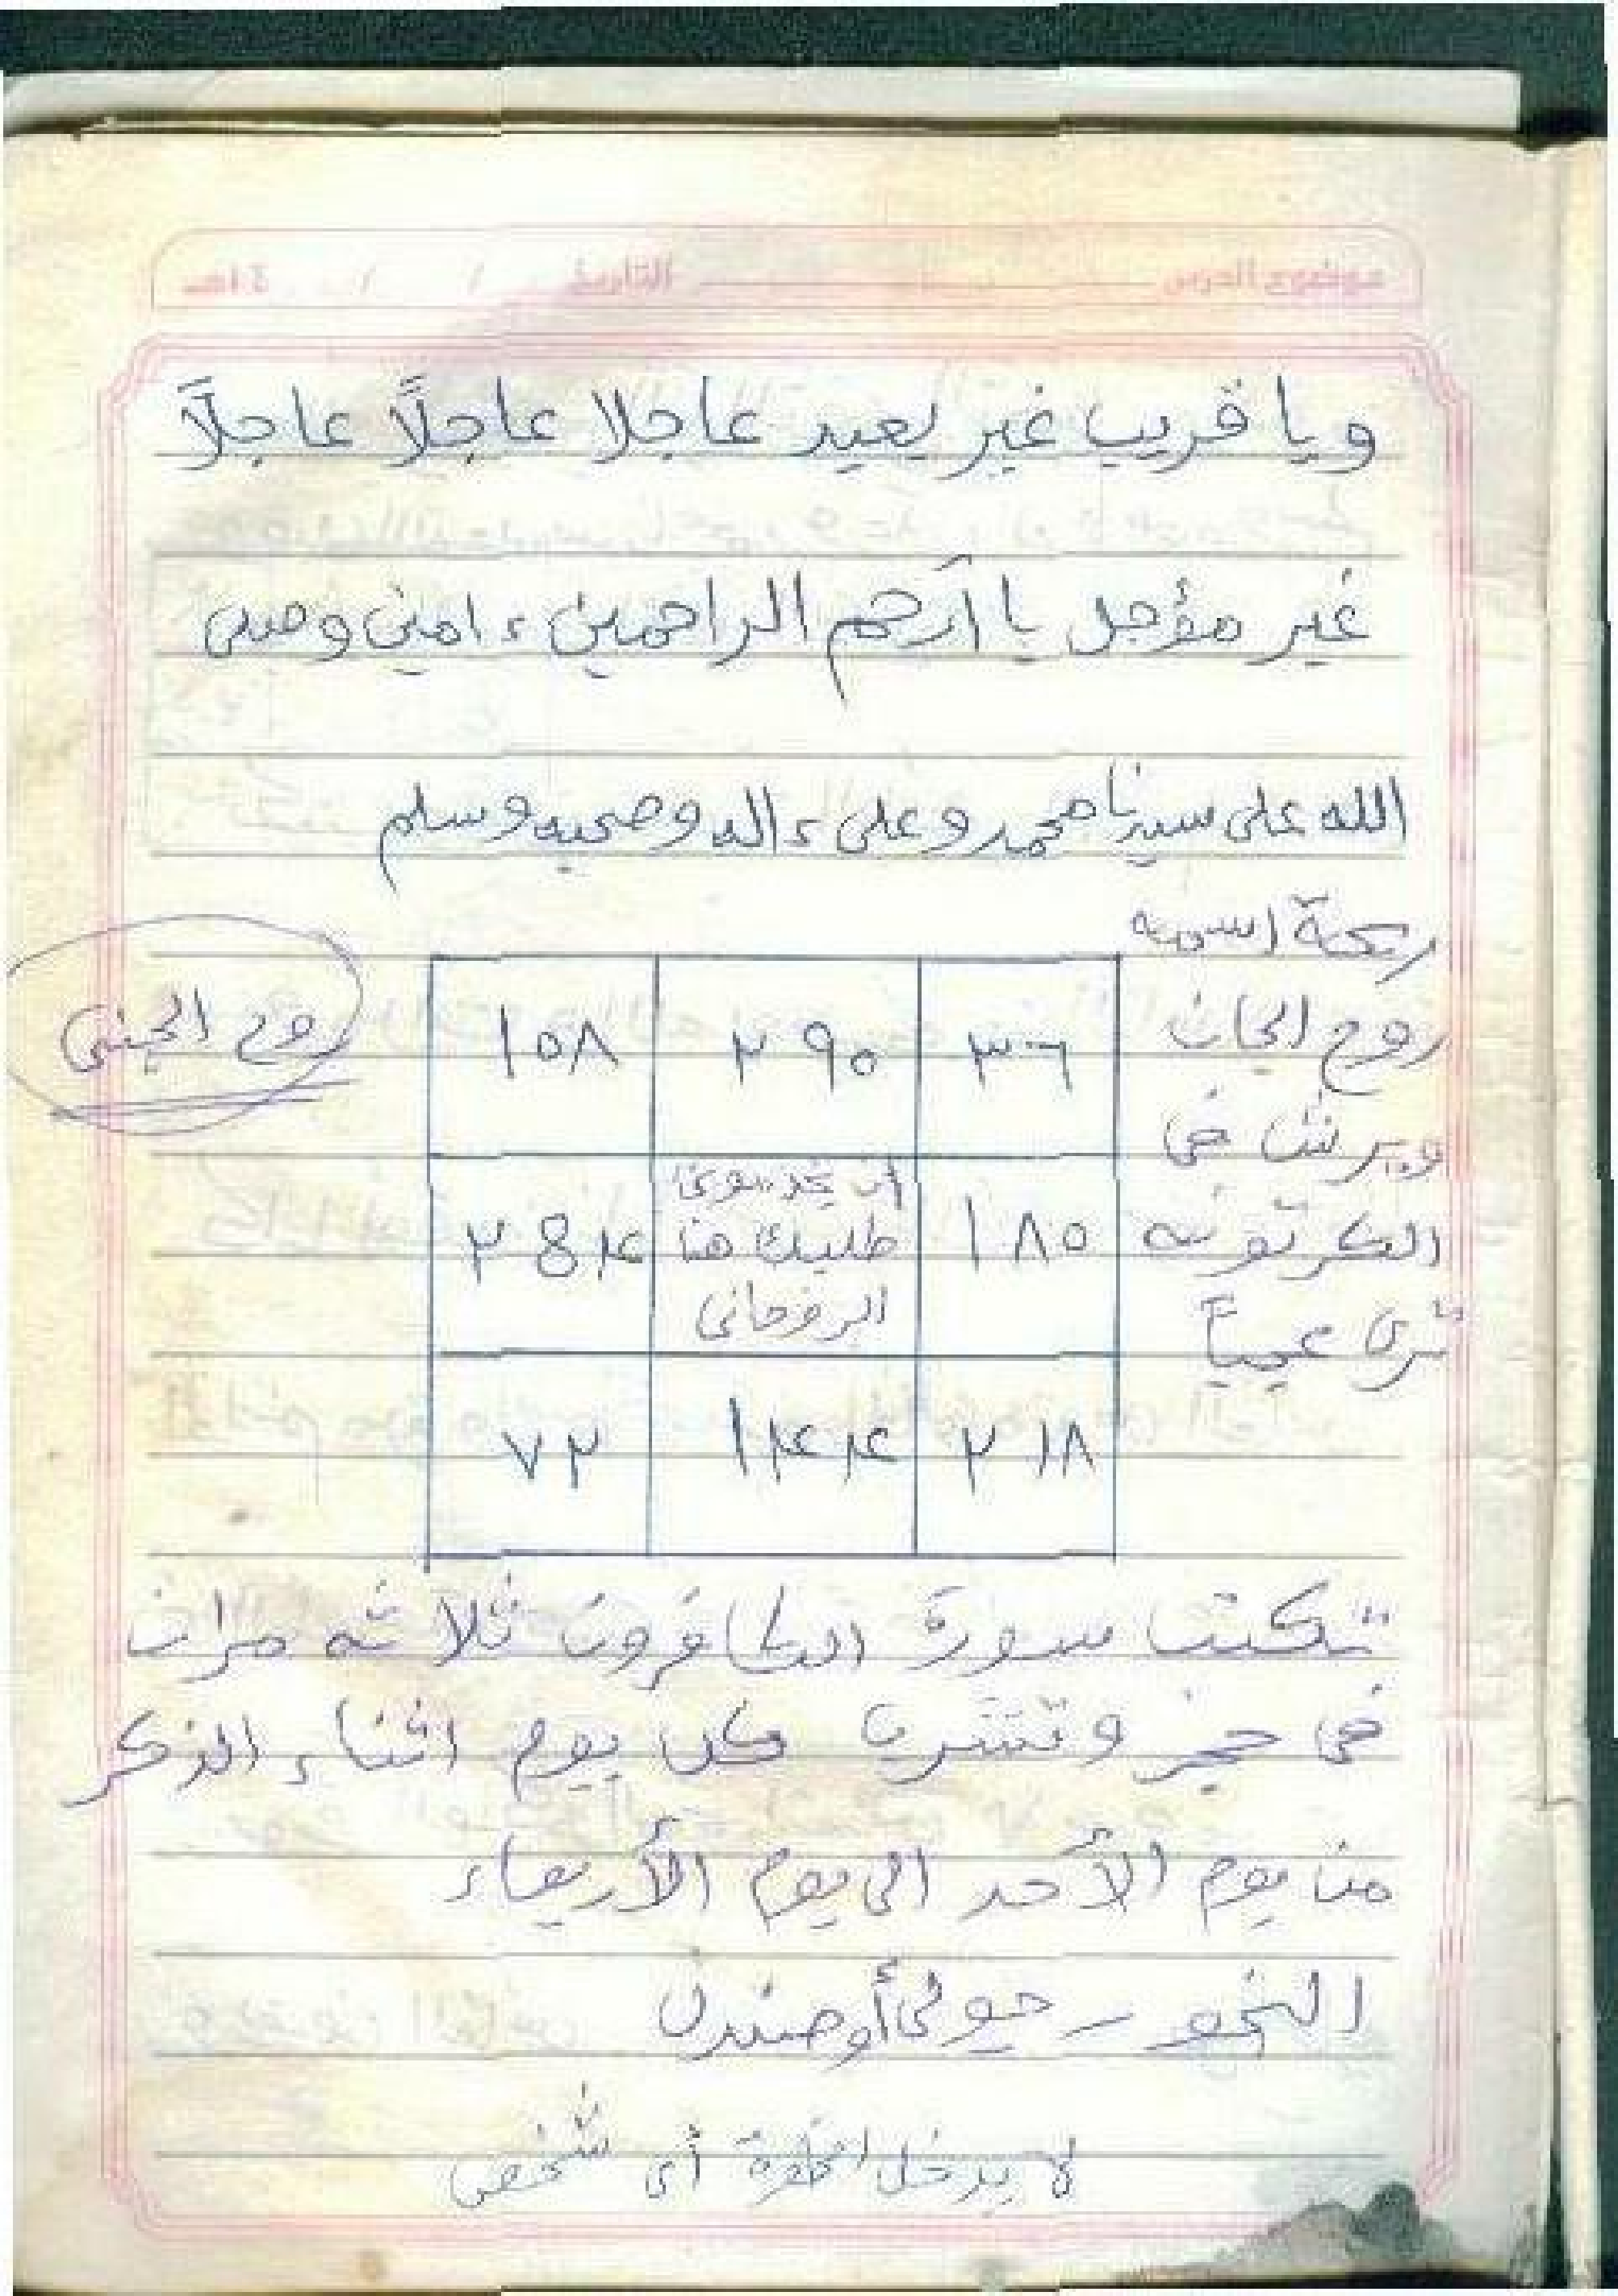 ويا قريب غير بعيد عاجلا عاجلاً عاجلاً
غير مؤجل يا أرحم الراحمين ءامين وصلى
الله على سيدنا محمد وعلى ءاله وصحبه وسلم
ريحة اسمه
روح الجان
ويرش في
الكرتونه
ترى عجباً
روح الجني
٣٦ ٢٩٠ ١٥٨
١٨٥
طلبك هنا
الروحاني
٢١٨ ١٤٤ ٧٢
تكتب سورة الكافرون ثلاثه مرات
في حجر وتشرب كل يوم اثناء الذكر
من يوم الأحد الى يوم الأربعاء
البخور أو صندل
لا يدخل الخلوة أي شخص